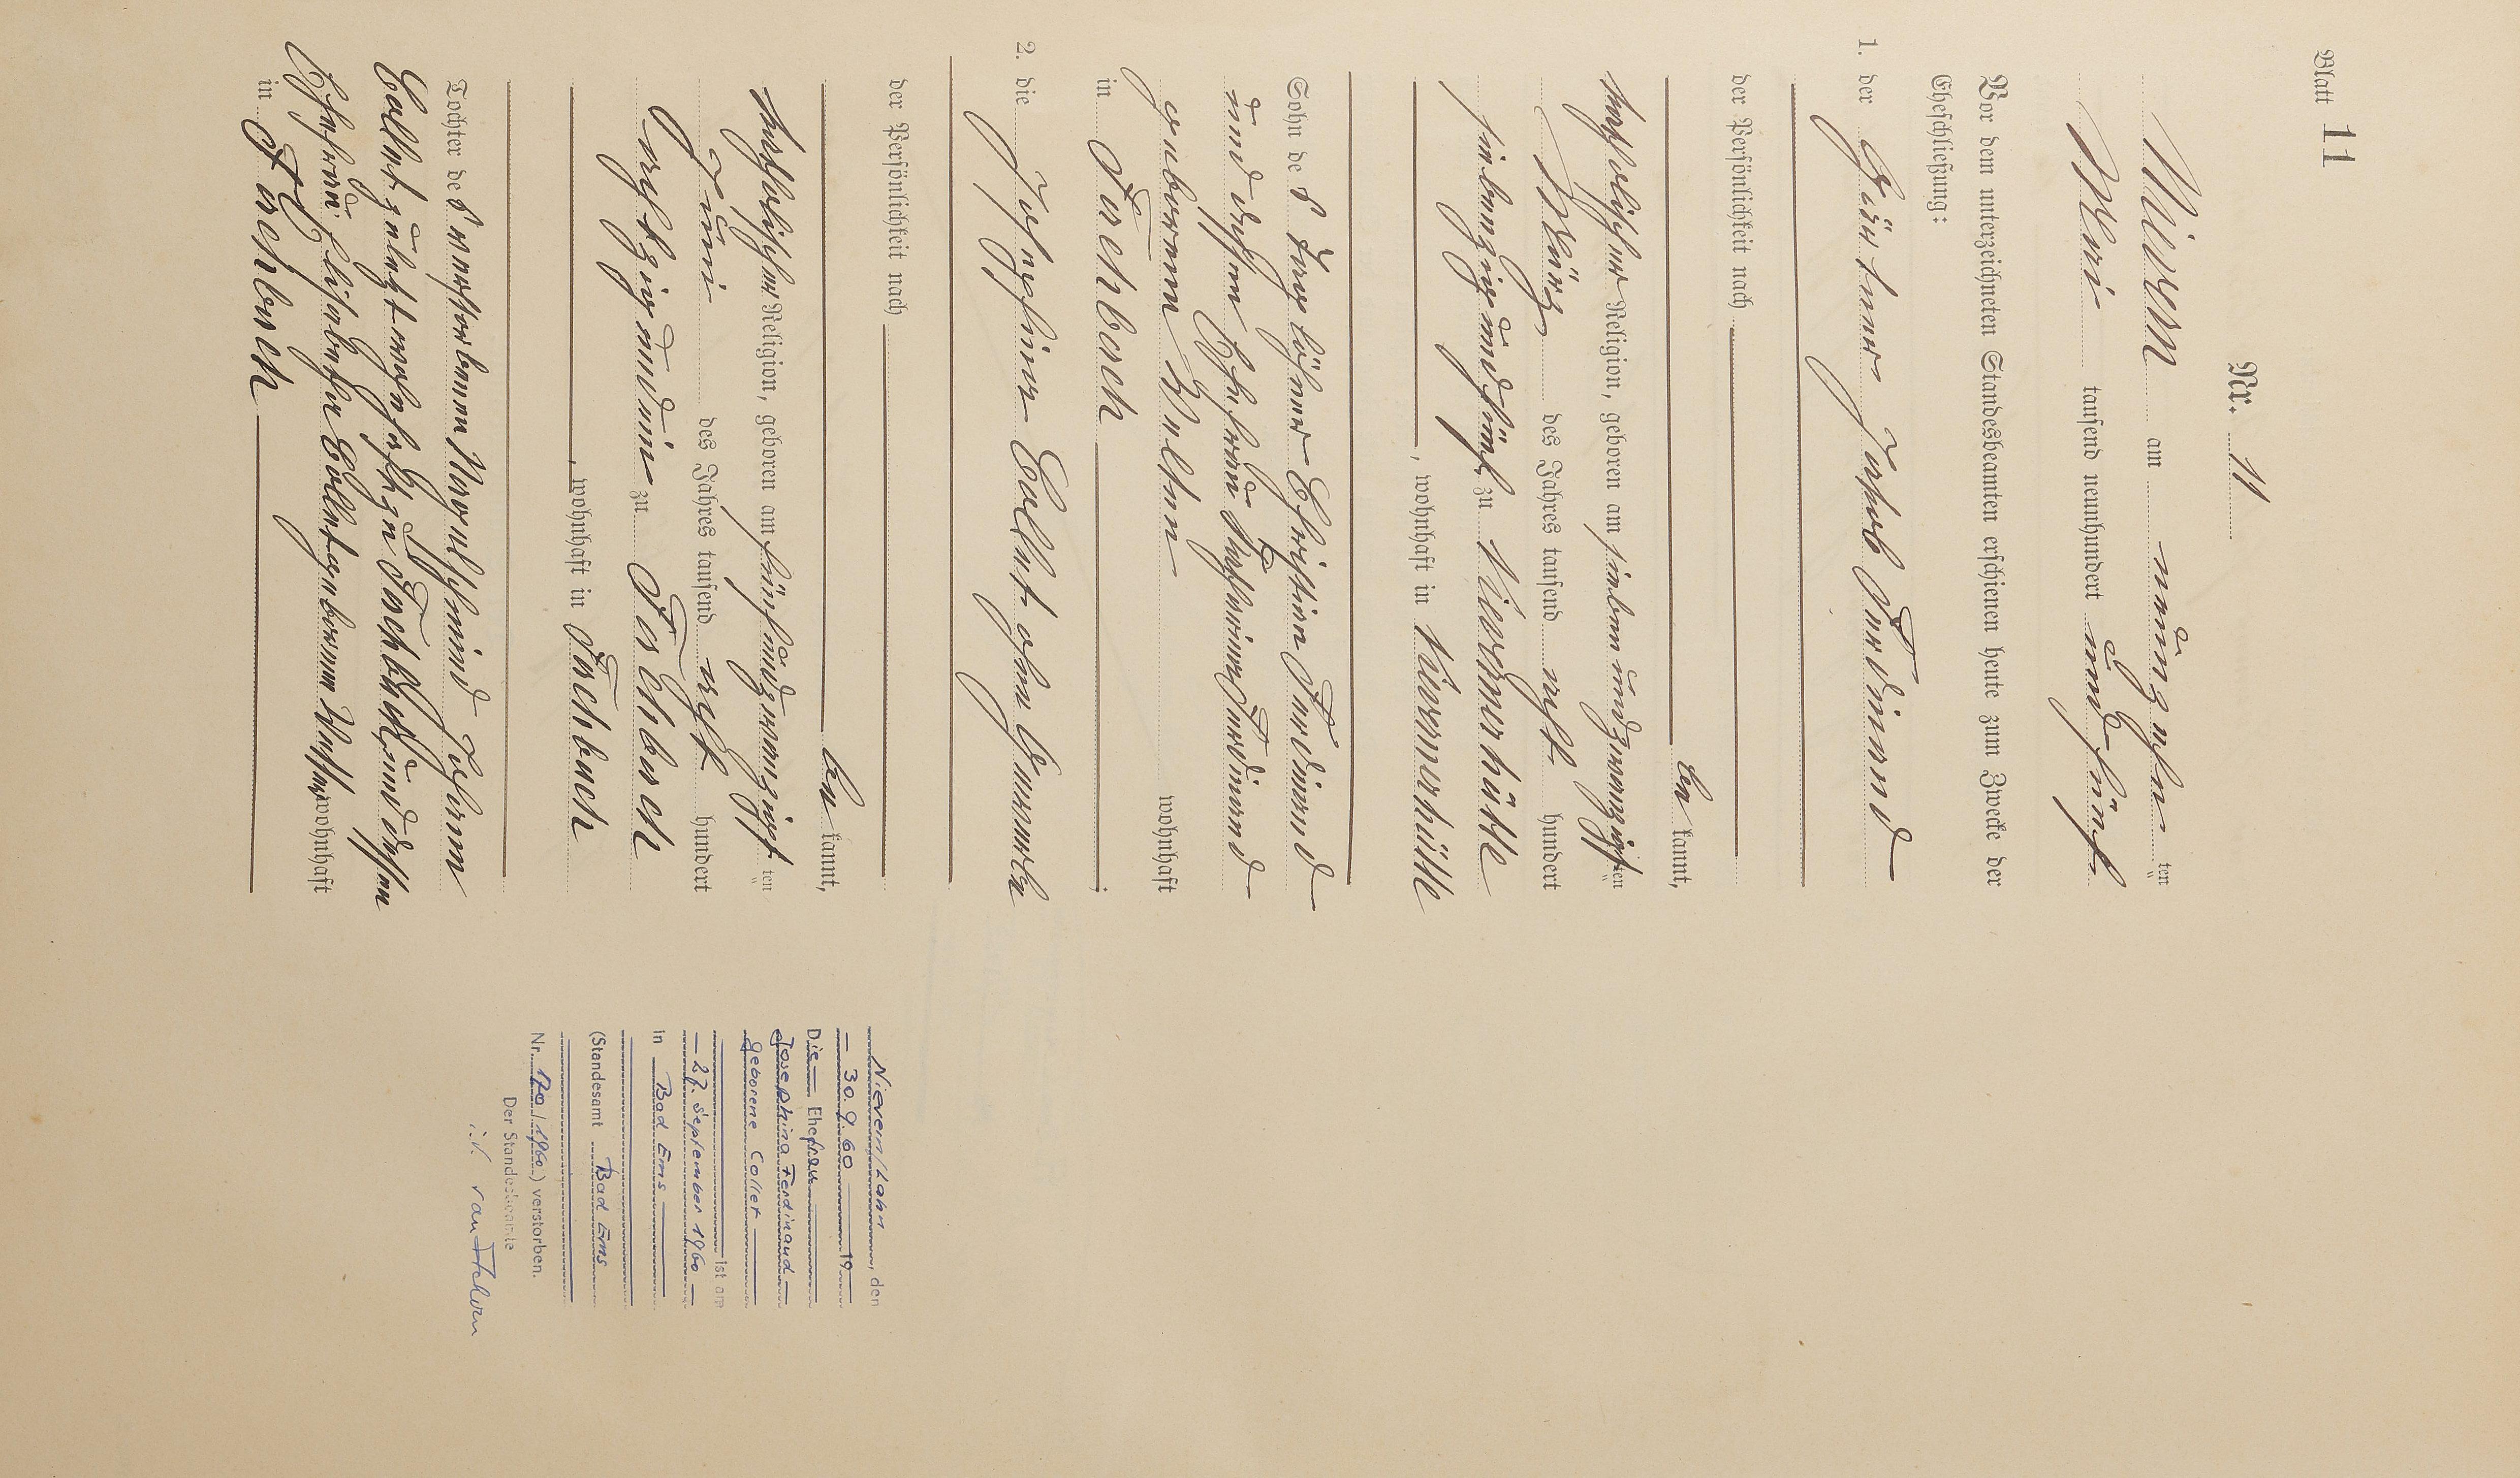 Blatt 11
Nr. 11
Nievern am neunzehn ten
Mai tausend neunhundert und fünf
Vor dem unterzeichneten Standesbeamten erschienen heute zum Zwecke der
Eheschließung:
1. der Gärtner Jakob Ferdinand
der Persönlichkeit nach
be kannt,
katholischer Religion, geboren am siebenundzwanzigsten
März des Jahres tausend acht hundert
siebenzig und fünf zu Nievernerhütte
, wohnhaft in Nievernerhütte
Sohn des Taglöhner Christian Ferdinand
und dessen Ehefrau Katharina Ferdinand
geborenen
wohnhaft
in Fachbach
2. die Josephine Collet ohne Gewerbe
der Persönlichkeit nach
be kannt,
katholischer Religion, geboren am fünfundzwanzigsten
Juni des Jahres tausend acht hundert
achtzig und ein zu Fachbach
, wohnhaft in Fachbach
Tochter des verstorbenen Nagelschmied Johann
Collet zuletzt wohnhaft zu Fachbach und dessen
Ehefrau Elisabetha Collet geborenen wohnhaft
in Fachbach
Nievern/Lahn, den
30. 9. 60 19
Die Ehefrau
Josephina Ferdinand
geborene Collet
ist am
27. September 1960
in Bad Ems
(Standesamt Bad Ems
Nr. 170/1960) verstorben.
Der Standesbeamte
i.V.